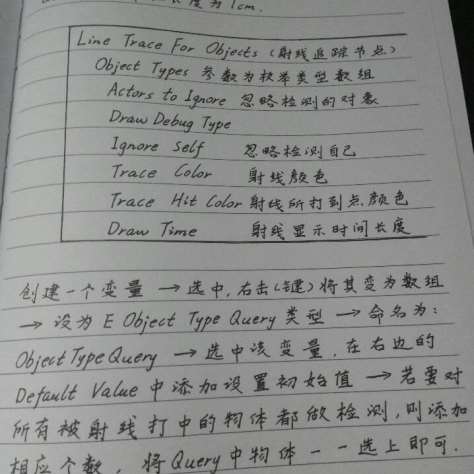 长度为1cm.
Line Trace For Objects (射线追踪节点)
Object Types 参数为枚举类型数组
Actors to Ignore 忽略检测的对象
Draw Debug Type
Ignore Self 忽略检测自己
Trace Color 射线颜色
Trace Hit Color 射线所打到点颜色
Draw Time 射线显示时间长度
创建一个变量 → 选中,右击(键)将其变为数组
→ 设为 E Object Type Query 类型 → 命名为:
ObjectTypeQuery → 选中该变量,在右边的
Default Value 中添加设置初始值 → 若要对
所有被射线打中的物体都做检测,则添加
相应个数,将Query中物体一一选上即可.